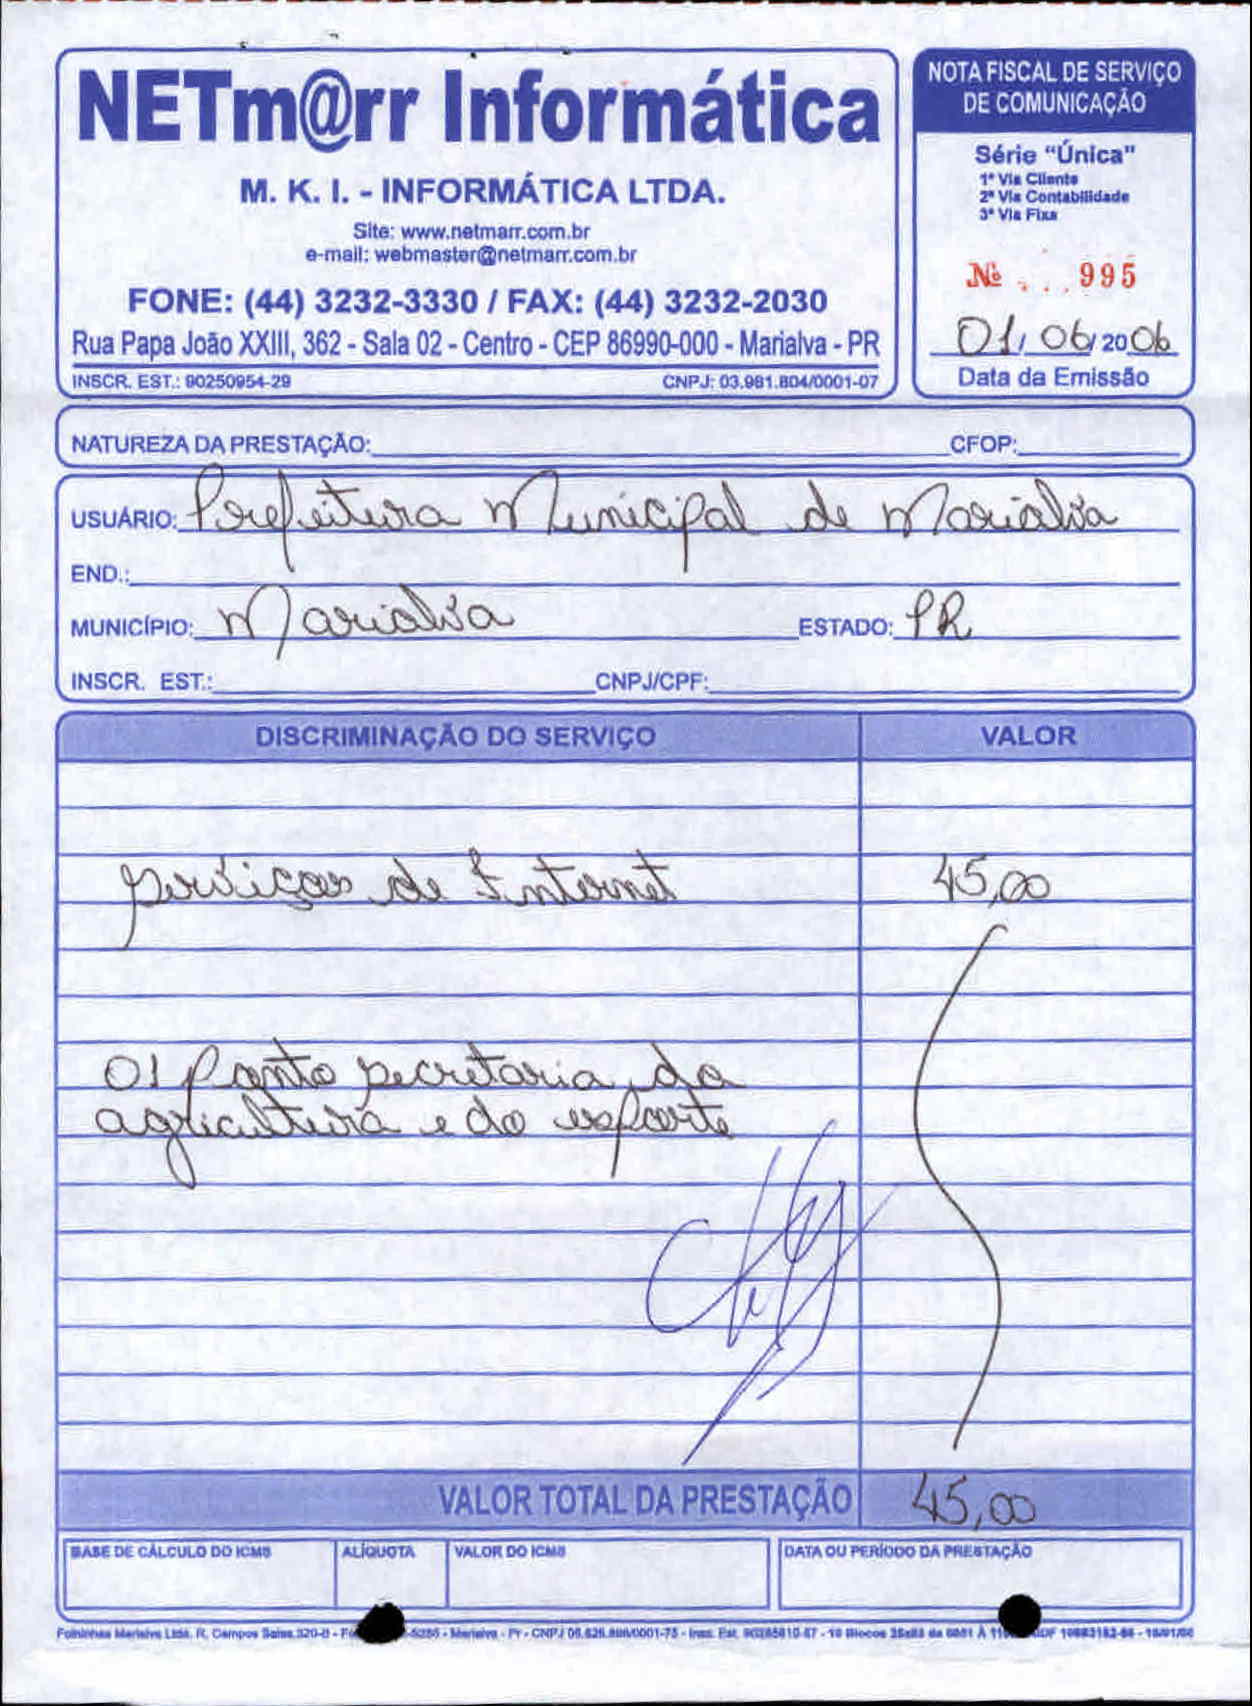 NETm@rr Informática
M. K. I. - INFORMÁTICA LTDA.
Site: www.netmarr.com.br
e-mail: webmaster@netmarr.com.br
FONE: (44) 3232-3330 / FAX: (44) 3232-2030
Rua Papa João XXIII, 362 - Sala 02 - Centro - CEP 86990-000 - Marialva - PR
INSCR. EST.: 90250954-29 CNPJ: 03.981.804/0001-07
NOTA FISCAL DE SERVIÇO
DE COMUNICAÇÃO
Série "Única"
1ª Via Cliente
2ª Via Contabilidade
3ª Via Fixa
Nº 995
01/06/2006
Data da Emissão
NATUREZA DA PRESTAÇÃO: CFOP:
USUÁRIO: Prefeitura Municipal de Marialva
END.:
MUNICÍPIO: Marialva ESTADO: PR
INSCR. EST.: CNPJ/CPF:
DISCRIMINAÇÃO DO SERVIÇO VALOR
serviços de Internet 45,00
01 Ponto secretaria da
agricultura e do esporte
VALOR TOTAL DA PRESTAÇÃO 45,00
BASE DE CÁLCULO DO ICMS ALÍQUOTA VALOR DO ICMS DATA OU PERÍODO DA PRESTAÇÃO
Marialva Ltda. R. Campos Sales, 320-B - Marialva - Pr - CNPJ - 10 Blocos